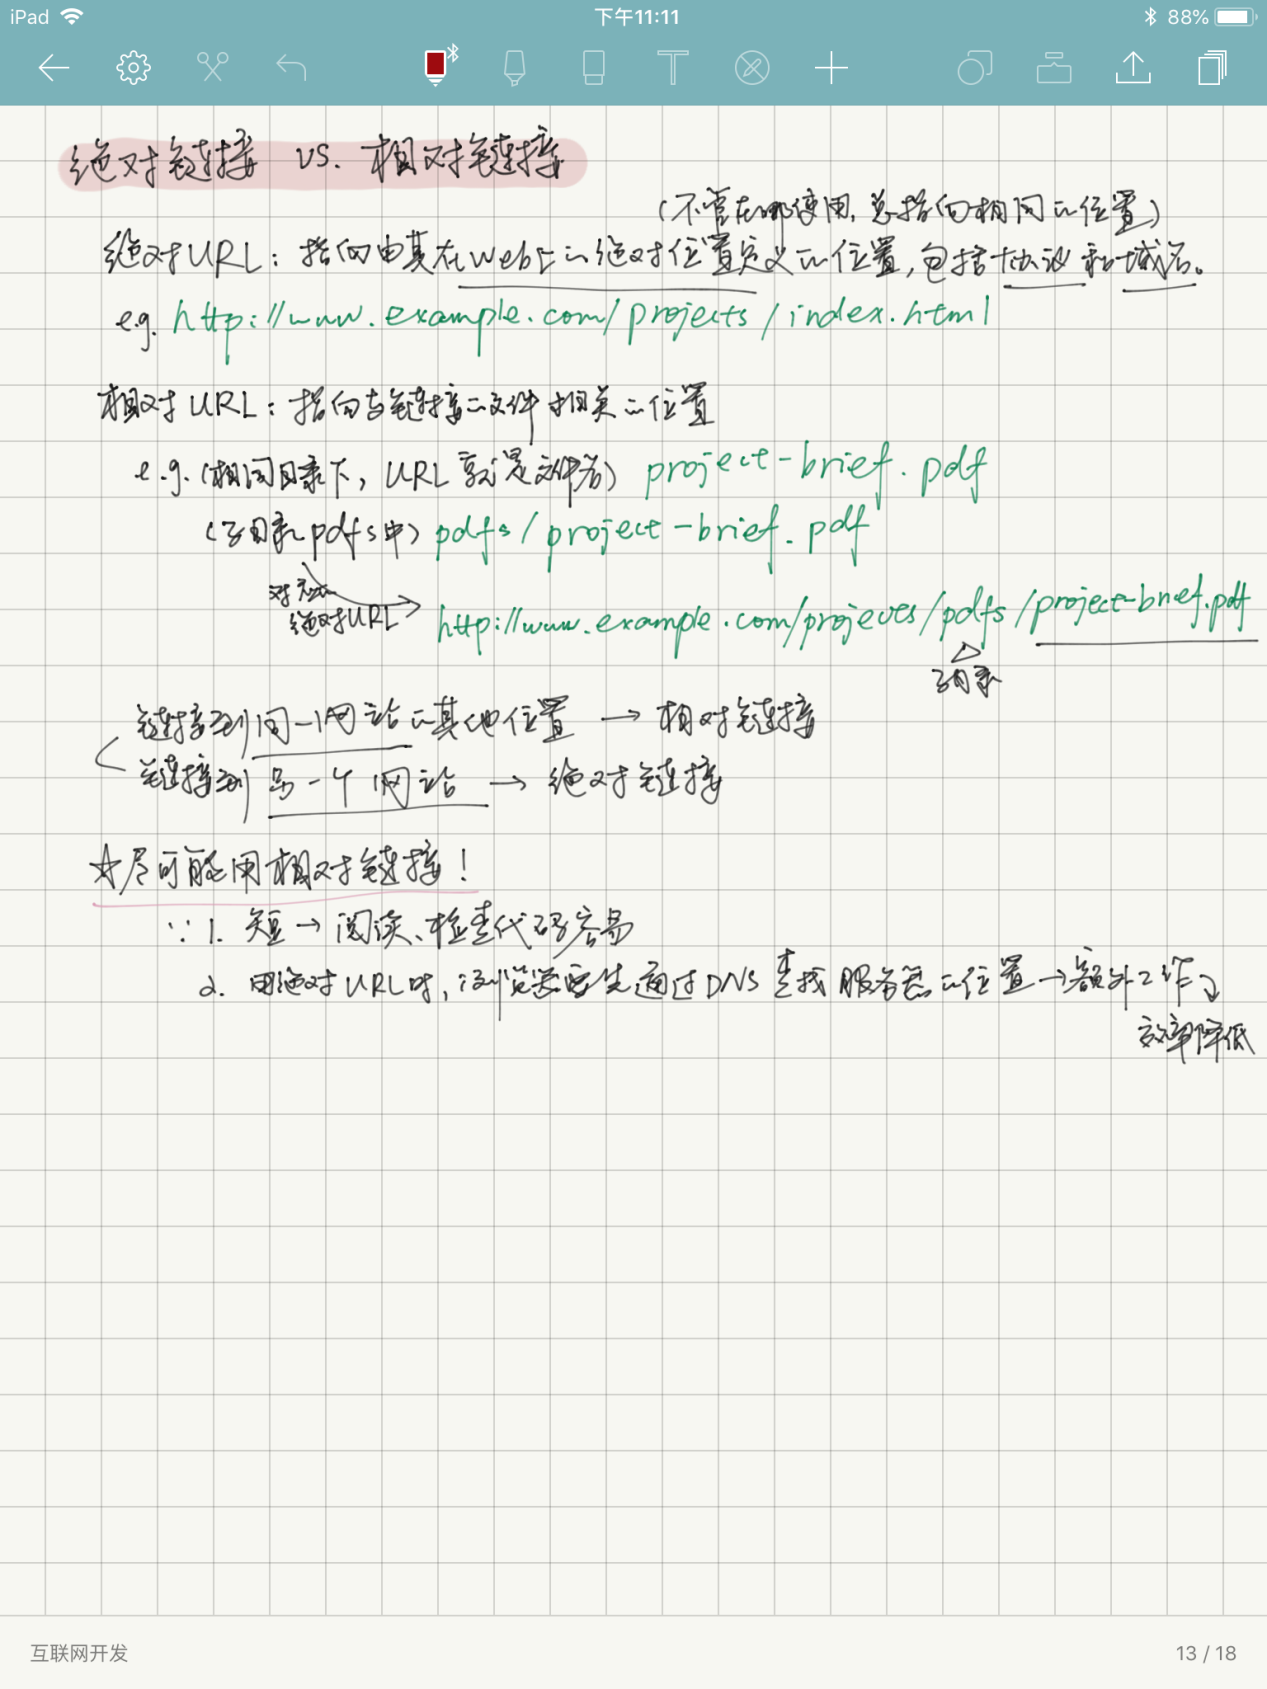 iPad 下午11:11 88%
绝对链接 vs. 相对链接
(不管在哪使用, 总指向相同的位置)
绝对URL: 指向由其在Web上的绝对位置定义的位置, 包括协议和域名。
e.g. http://www.example.com/projects/index.html
相对URL: 指向与链接的文件相关的位置
e.g. (相同目录下, URL就是文件名) project-brief.pdf
(子目录pdfs中) pdfs/project-brief.pdf
对应
绝对URL http://www.example.com/projeves/pdfs/project-brief.pdf
子目录
链接到同一网站的其他位置 → 相对链接
链接到另一个网站 → 绝对链接
☆尽可能用相对链接!
∵ 1. 短 → 阅读、检查代码容易
2. 用绝对URL时, 浏览器要先通过DNS查找服务器的位置 → 额外工作
效率降低
互联网开发 13 / 18